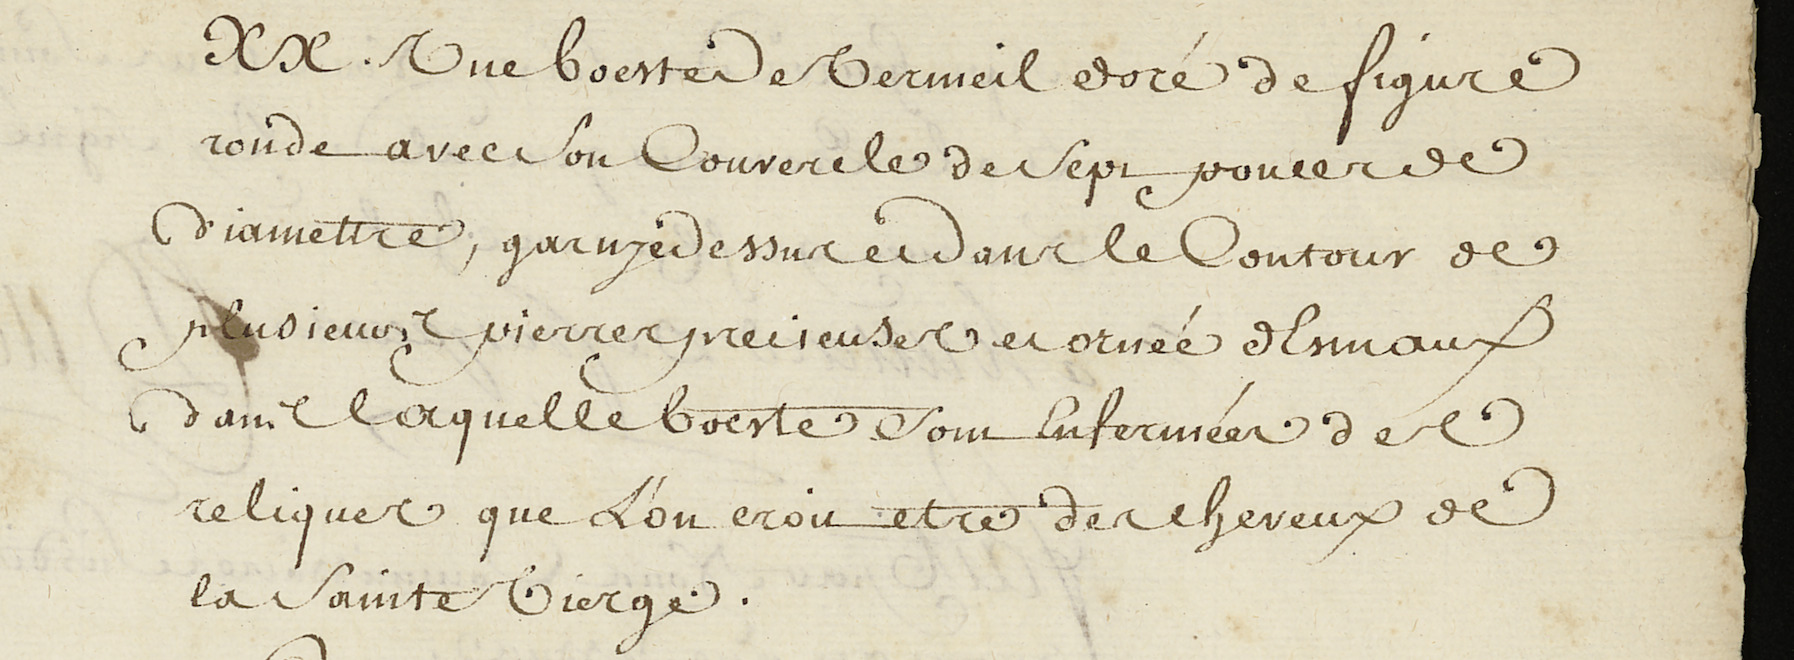 XX. Une boeste de Vermeil doré de figure
ronde avec son Couvercle de sept pouces de
diamettre, garnye dessus et dans le Contour de
plusieurs pierres precieuses et ornée d'Emaux
dans laquelle boeste sont Enfermées des
reliques que L'on croit etre des cheveux de
la Sainte Vierge.